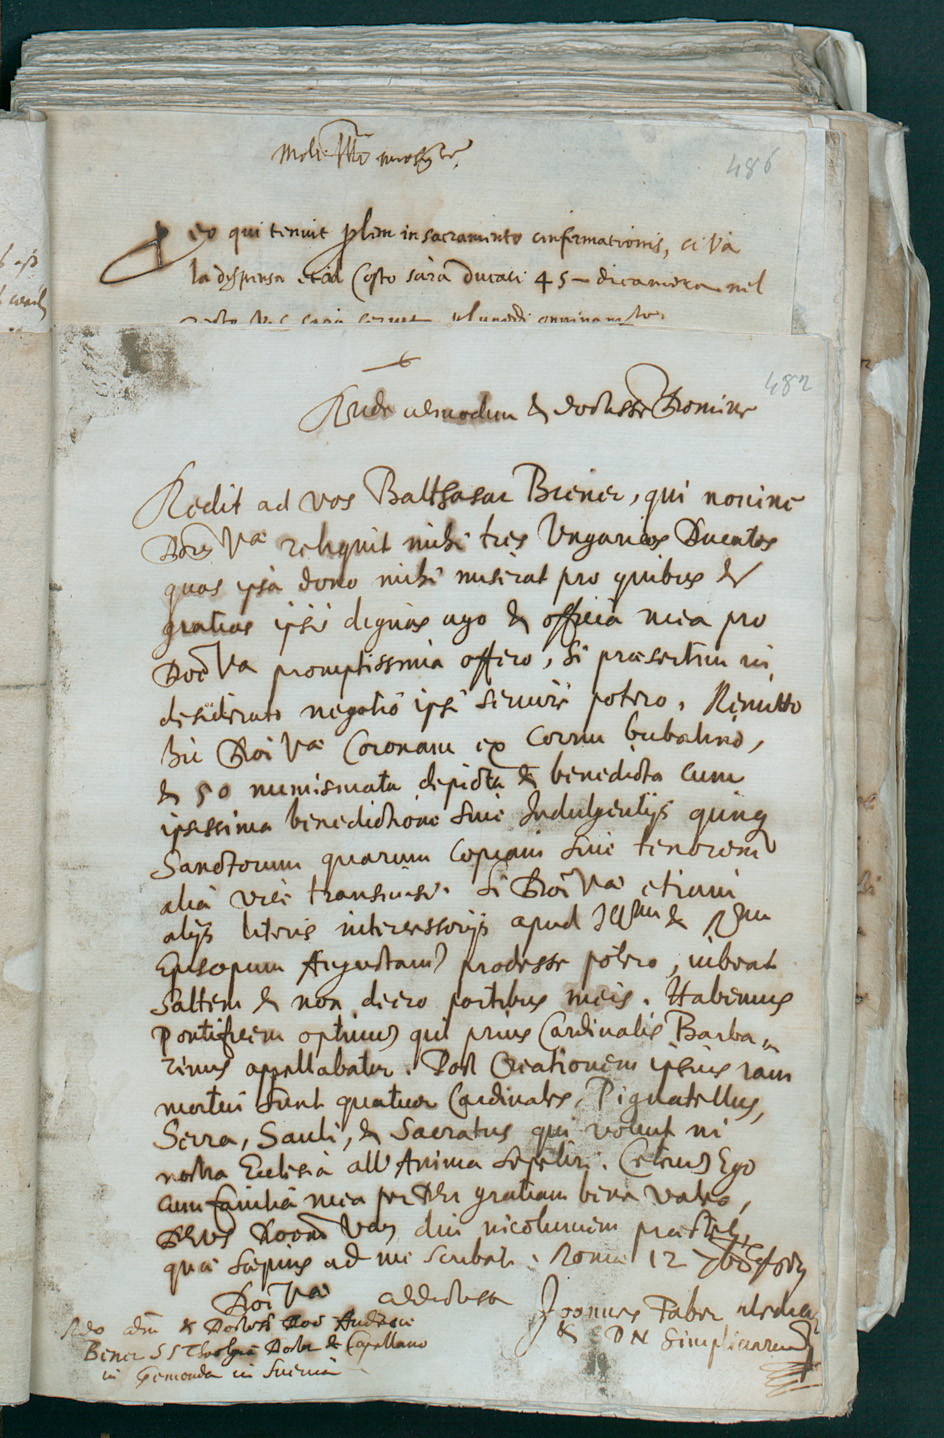 486
eo qui tenuit filium in sacramento confirmationis, ci va
la dispensa et il Costo sarà ducati 45 di camera nel
482
Rnde admodum & doctisse Domine
Redit ad vos Balthasar Biener, qui nomine
Dois Vae reliquit mihi tres Ungaricos Ducatos
quos ipsa dono mihi miserat pro quibus &
gratias ipsi dignas ago & officia mea pro
Doe Va promptissima offero, si praesertim in
desiderato negotio ipsi servire potero. Remitto
hic Doi Vae Coronam ex cornu bubalino,
& 50 numismata depicta & benedicta cum
ipsissima benedictione sive Indulgentijs quinq
Sanctorum quarum copiam sive tenorem
alia vice transmisi. Si Doi Vae etiam
alijs literis intercessorijs apud Illm & Rm
Episcopum Augustanū prodesse potero, iubeat
saltem & non deero partibus meis. Habemus
Pontificem optimū qui prius Cardinalis Barba„
rinus appellabatur. Post Creationem ipsius iam
mortui sunt quatuor Cardinales, Pignatellus,
Serra, Sauli, & Sacratus qui voluit in
nostra Ecclesia all'Anima sepeliri. Ceterū Ego
cum familia mea per Dei gratiam bene valeo,
Deus Doem Vam diu incolumem praestet,
quae saepius ad me scribat. Romae 12
Doi Vae addictiss
Joannes Faber
Rdo adm & Doctiss Doo Andreae
Biener SS Theologiae Doctor & Capellano
in Gemonda in Suevia